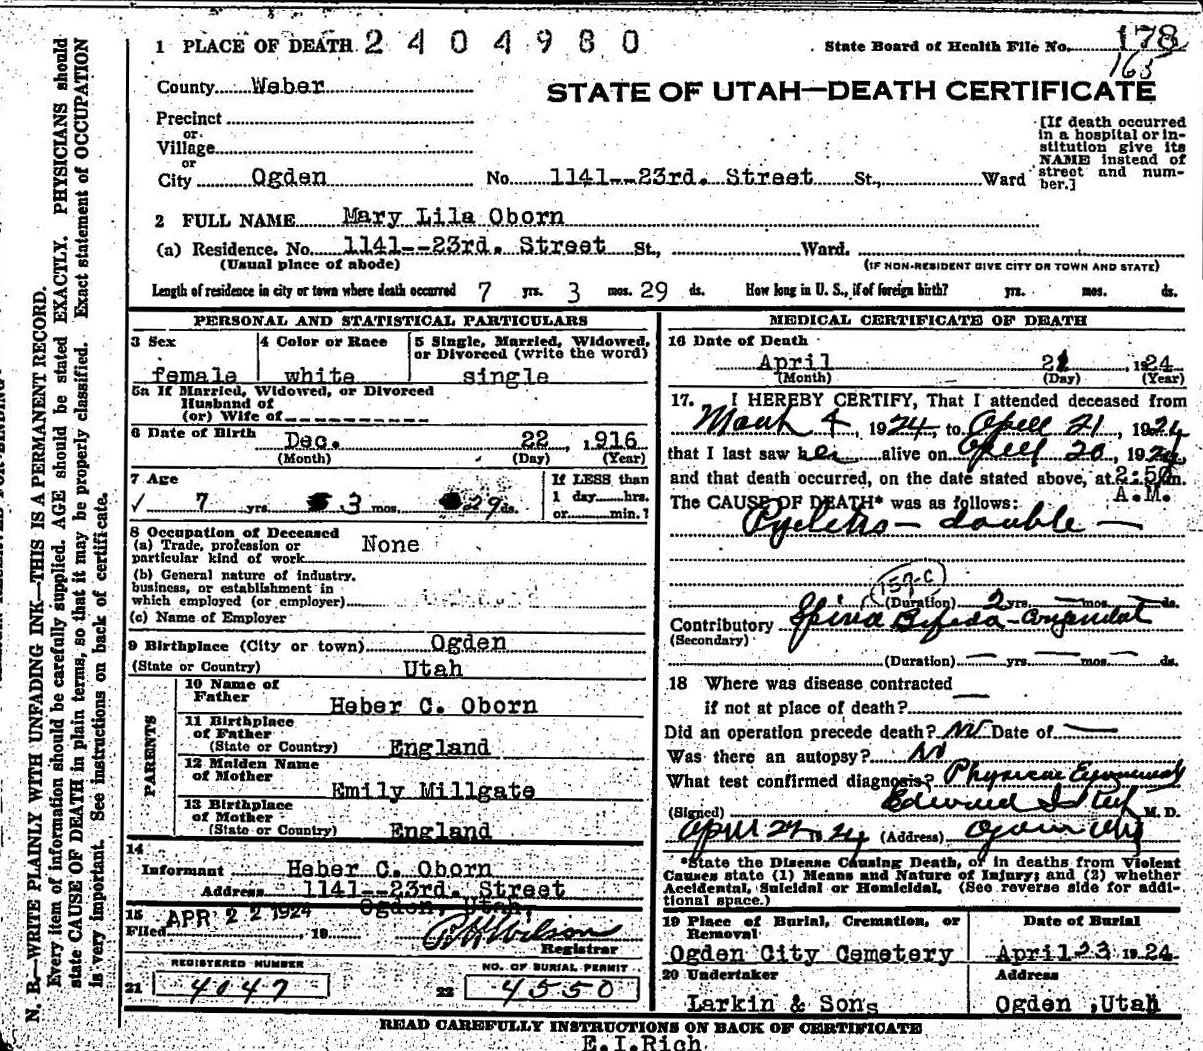 1 PLACE OF DEATH 2404980
State Board of Health File No. 178
165
County Weber
STATE OF UTAH—DEATH CERTIFICATE
Precinct
or
Village
or
City Ogden No. 1141--23rd. Street St., Ward
[If death occurred
in a hospital or in-
stitution give its
NAME instead of
street and num-
ber.]
2 FULL NAME Mary Lila Oborn
(a) Residence. No. 1141--23rd. Street St., Ward.
(Usual place of abode) (IF NON-RESIDENT GIVE CITY OR TOWN AND STATE)
Length of residence in city or town where death occurred 7 yrs. 3 mos. 29 ds. How long in U. S., if of foreign birth? yrs. mos. ds.
PERSONAL AND STATISTICAL PARTICULARS
3 Sex
female
4 Color or Race
white
5 Single, Married, Widowed,
or Divorced (write the word)
single
5a If Married, Widowed, or Divorced
Husband of
(or) Wife of
6 Date of Birth Dec. 22 , 1916
(Month) (Day) (Year)
7 Age
7 yrs. 3 mos. 29 ds.
If LESS than
1 day hrs.
or min.?
8 Occupation of Deceased
(a) Trade, profession or
particular kind of work None
(b) General nature of industry,
business, or establishment in
which employed (or employer)
(c) Name of Employer
9 Birthplace (City or town) Ogden
(State or Country) Utah
PARENTS
10 Name of
Father Heber C. Oborn
11 Birthplace
of Father
(State or Country) England
12 Maiden Name
of Mother
Emily Millgate
13 Birthplace
of Mother
(State or Country) England
14
Informant Heber C. Oborn
Address 1141--23rd. Street
Ogden, Utah,
15 APR 22 1924
Filed , 19
Wilson
Registrar
REGISTERED NUMBER
21 4047
NO. OF BURIAL PERMIT
22 4550
MEDICAL CERTIFICATE OF DEATH
16 Date of Death
April 21 , 1924
(Month) (Day) (Year)
17. I HEREBY CERTIFY, That I attended deceased from
March 4, 1924, to April 21, 1924
that I last saw her alive on April 20, 1924,
and that death occurred, on the date stated above, at 2:50 m.
A.M.
The CAUSE OF DEATH* was as follows:
Pyelitis — double —
159-C
(Duration) 2 yrs. — mos. — ds.
Contributory Spina Bifida - Congenital
(Secondary)
(Duration) — yrs. — mos. — ds.
18 Where was disease contracted
if not at place of death? —
Did an operation precede death? No Date of —
Was there an autopsy? No
What test confirmed diagnosis? Physical
(Signed) Edward I. Rich M. D.
April 22 1924 (Address) Ogden Utah
*State the Disease Causing Death, or in deaths from Violent
Causes state (1) Means and Nature of Injury; and (2) whether
Accidental, Suicidal or Homicidal. (See reverse side for addi-
tional space.)
19 Place of Burial, Cremation, or
Removal
Ogden City Cemetery
Date of Burial
April 23 1924.
20 Undertaker
Larkin & Sons
Address
Ogden ,Utah
READ CAREFULLY INSTRUCTIONS ON BACK OF CERTIFICATE
E.I.Rich
N. B.—WRITE PLAINLY WITH UNFADING INK—THIS IS A PERMANENT RECORD.
Every item of information should be carefully supplied. AGE should be stated EXACTLY. PHYSICIANS should
state CAUSE OF DEATH in plain terms, so that it may be properly classified. Exact statement of OCCUPATION
is very important. See instructions on back of certificate.